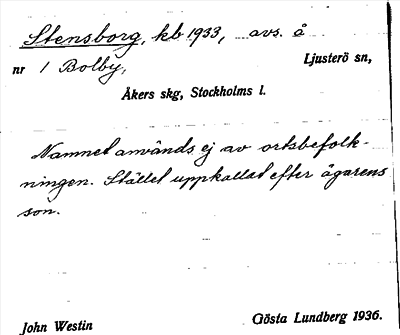 Stensborg, kb 1933, avs. å
nr 1 Bolby, Ljusterö sn,
Åkers skg, Stockholms l.
Namnet används ej av ortsbefolk-
ningen. Stället uppkallat efter ägarens
son.
John Westin Gösta Lundberg 1936.